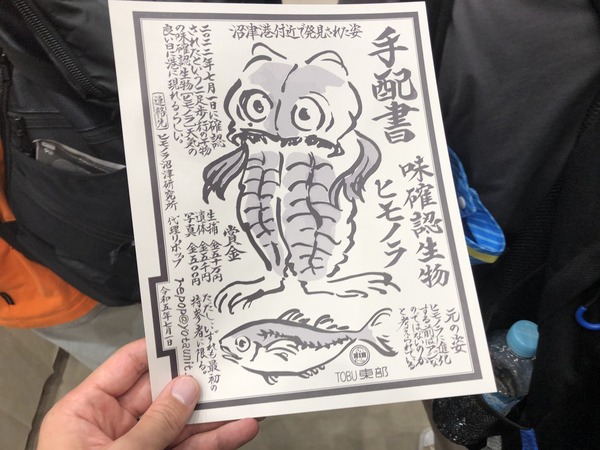 手配書
味確認生物
ヒモノラ
沼津港付近で発見された姿
二〇二二年七月一日に確認
されたという二足歩行の干物
の味確認生物「ヒモノラ」天気の
良い日に港に現れるらしい。
連絡先 ヒモノラ沼津研究所
代理リポップ
repop@yotaunit
令和五年七月一日
賞金
生捕 金五十万円
遺体 金五千円
写真 金五〇〇円
ただし、いずれも最初の
持参者に限る。
元の姿
ヒモノラに進化
する前はアジな
のではないのか
と考えられている
TOBU 東部